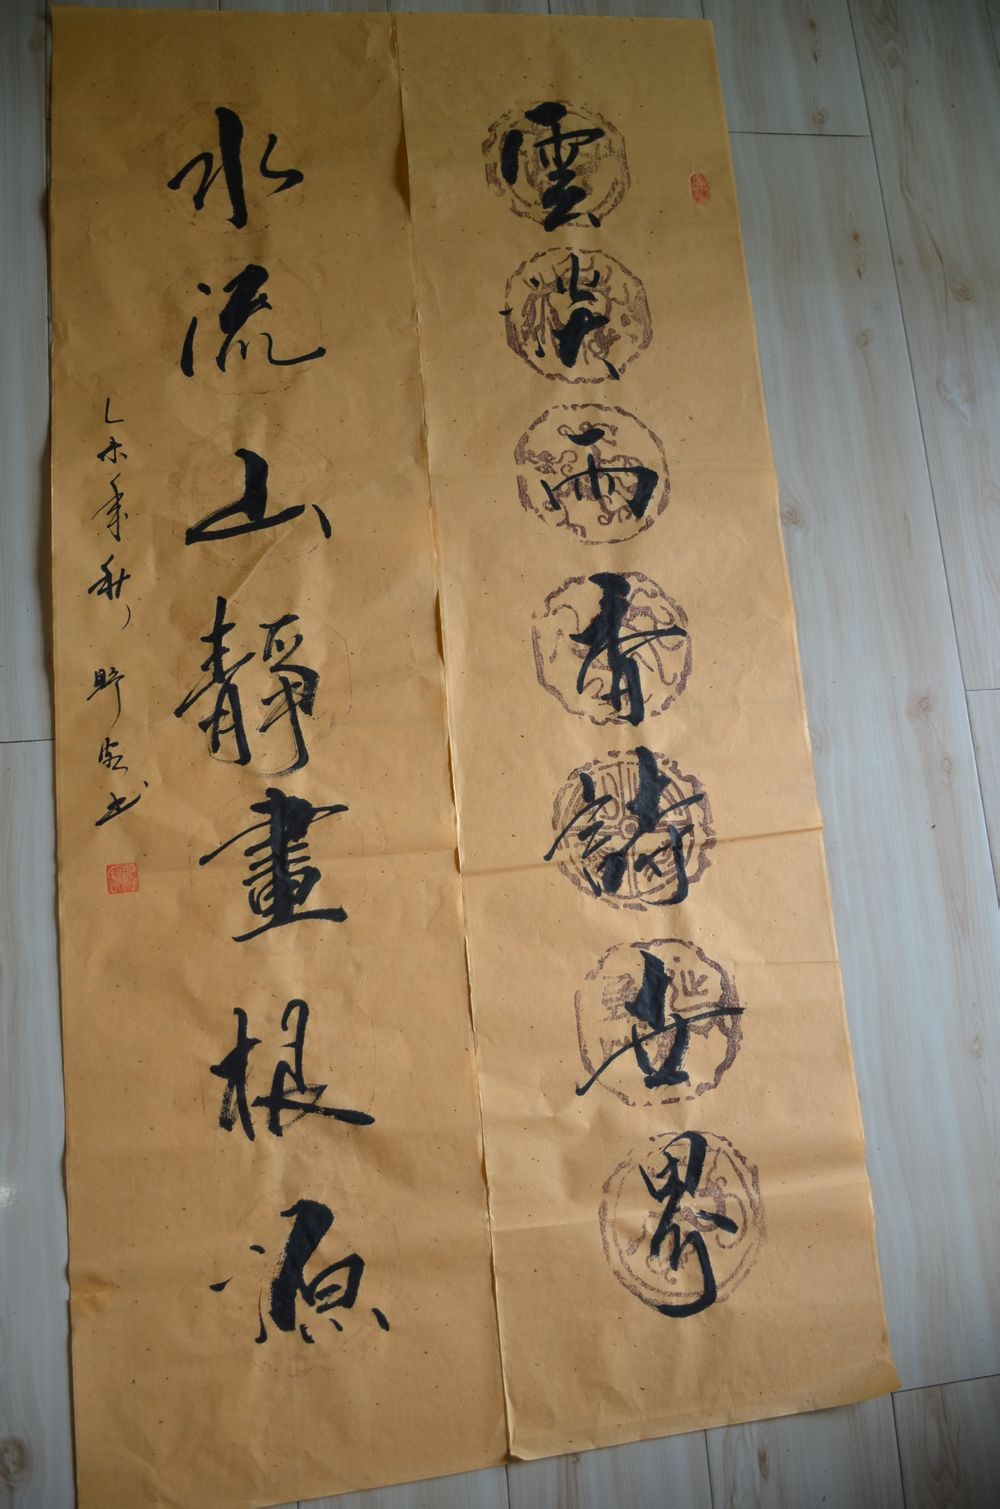 雲淡雨香詩世界
水流山靜畫根源
乙未年秋
書